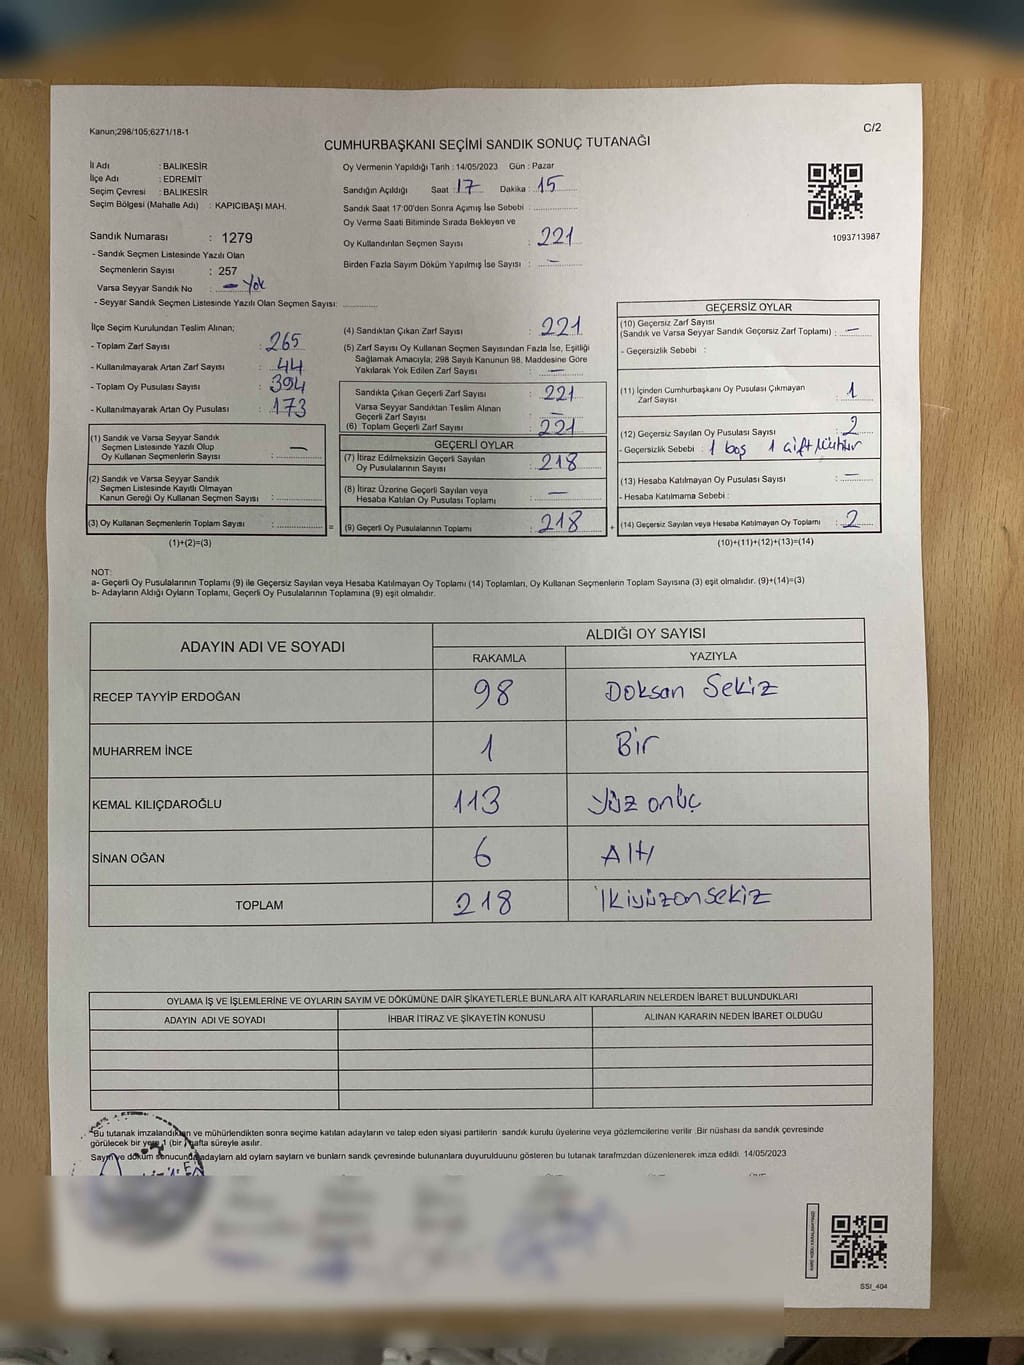 Kanun;298/105;6271/18-1
C/2
CUMHURBAŞKANI SEÇİMİ SANDIK SONUÇ TUTANAĞI
İl Adı : BALIKESİR
İlçe Adı : EDREMİT
Seçim Çevresi : BALIKESİR
Seçim Bölgesi (Mahalle Adı) : KAPICIBAŞI MAH.
Sandık Numarası : 1279
- Sandık Seçmen Listesinde Yazılı Olan
Seçmenlerin Sayısı : 257
Varsa Seyyar Sandık No : — Yok
- Seyyar Sandık Seçmen Listesinde Yazılı Olan Seçmen Sayısı:
Oy Vermenin Yapıldığı Tarih : 14/05/2023 Gün : Pazar
Sandığın Açıldığı Saat : 17 Dakika : 15
Sandık Saat 17:00'den Sonra Açımış İse Sebebi :
Oy Verme Saati Bitiminde Sırada Bekleyen ve
Oy Kullandırılan Seçmen Sayısı : 221
Birden Fazla Sayım Döküm Yapılmış İse Sayısı : —
1093713987
İlçe Seçim Kurulundan Teslim Alınan;
- Toplam Zarf Sayısı : 265
- Kullanılmayarak Artan Zarf Sayısı : 44
- Toplam Oy Pusulası Sayısı : 394
- Kullanılmayarak Artan Oy Pusulası : 173
(1) Sandık ve Varsa Seyyar Sandık
Seçmen Listesinde Yazılı Olup
Oy Kullanan Seçmenlerin Sayısı : —
(2) Sandık ve Varsa Seyyar Sandık
Seçmen Listesinde Kayıtlı Olmayan
Kanun Gereği Oy Kullanan Seçmen Sayısı :
(3) Oy Kullanan Seçmenlerin Toplam Sayısı :
(1)+(2)=(3)
(4) Sandıktan Çıkan Zarf Sayısı : 221
(5) Zarf Sayısı Oy Kullanan Seçmen Sayısından Fazla İse, Eşitliği
Sağlamak Amacıyla; 298 Sayılı Kanunun 98. Maddesine Göre
Yakılarak Yok Edilen Zarf Sayısı : —
Sandıkta Çıkan Geçerli Zarf Sayısı : 221
Varsa Seyyar Sandıktan Teslim Alınan
Geçerli Zarf Sayısı : —
(6) Toplam Geçerli Zarf Sayısı : 221
GEÇERLİ OYLAR
(7) İtiraz Edilmeksizin Geçerli Sayılan
Oy Pusulalarının Sayısı : 218
(8) İtiraz Üzerine Geçerli Sayılan veya
Hesaba Katılan Oy Pusulası Toplamı : —
= (9) Geçerli Oy Pusulalarının Toplamı : 218 +
GEÇERSİZ OYLAR
(10) Geçersiz Zarf Sayısı
(Sandık ve Varsa Seyyar Sandık Geçersiz Zarf Toplamı) : —
- Geçersizlik Sebebi :
(11) İçinden Cumhurbaşkanı Oy Pusulası Çıkmayan
Zarf Sayısı : 1
(12) Geçersiz Sayılan Oy Pusulası Sayısı : 2
- Geçersizlik Sebebi : 1 boş 1 çift Mühür
(13) Hesaba Katılmayan Oy Pusulası Sayısı : —
- Hesaba Katılmama Sebebi :
(14) Geçersiz Sayılan veya Hesaba Katılmayan Oy Toplamı : 2
(10)+(11)+(12)+(13)=(14)
NOT:
a- Geçerli Oy Pusulalarının Toplamı (9) ile Geçersiz Sayılan veya Hesaba Katılmayan Oy Toplamı (14) Toplamları, Oy Kullanan Seçmenlerin Toplam Sayısına (3) eşit olmalıdır. (9)+(14)=(3)
b- Adayların Aldığı Oyların Toplamı, Geçerli Oy Pusulalarının Toplamına (9) eşit olmalıdır.
ADAYIN ADI VE SOYADI ALDIĞI OY SAYISI
RAKAMLA YAZIYLA
RECEP TAYYİP ERDOĞAN 98 Doksan Sekiz
MUHARREM İNCE 1 Bir
KEMAL KILIÇDAROĞLU 113 Yüz onüç
SİNAN OĞAN 6 Altı
TOPLAM 218 İkiyüzonsekiz
OYLAMA İŞ VE İŞLEMLERİNE VE OYLARIN SAYIM VE DÖKÜMÜNE DAİR ŞİKAYETLERLE BUNLARA AİT KARARLARIN NELERDEN İBARET BULUNDUKLARI
ADAYIN ADI VE SOYADI İHBAR İTİRAZ VE ŞİKAYETİN KONUSU ALINAN KARARIN NEDEN İBARET OLDUĞU
Bu tutanak imzalandıktan ve mühürlendikten sonra seçime katılan adayların ve talep eden siyasi partilerin sandık kurulu üyelerine veya gözlemcilerine verilir .Bir nüshası da sandık çevresinde
görülecek bir yere 1 (bir ) hafta süreyle asılır.
Sayım ve döküm sonucunda adayların ald oyların sayların ve bunların sandk çevresinde bulunanlara duyurulduunu gösteren bu tutanak tarafmzdan düzenlenerek imza edildi. 14/05/2023
SSI_404